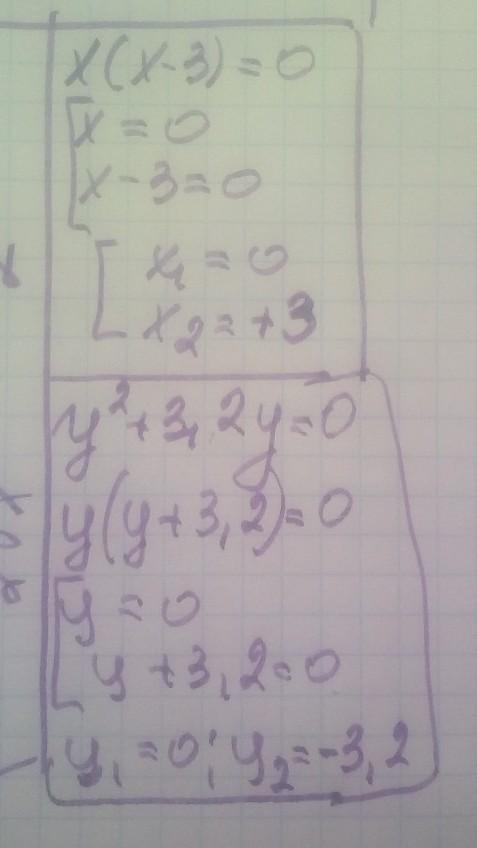 x(x-3)=0
x=0
x-3=0
x₁=0
x₂=+3
y²+3,2y=0
y(y+3,2)=0
y=0
y+3,2=0
y₁=0; y₂=-3,2